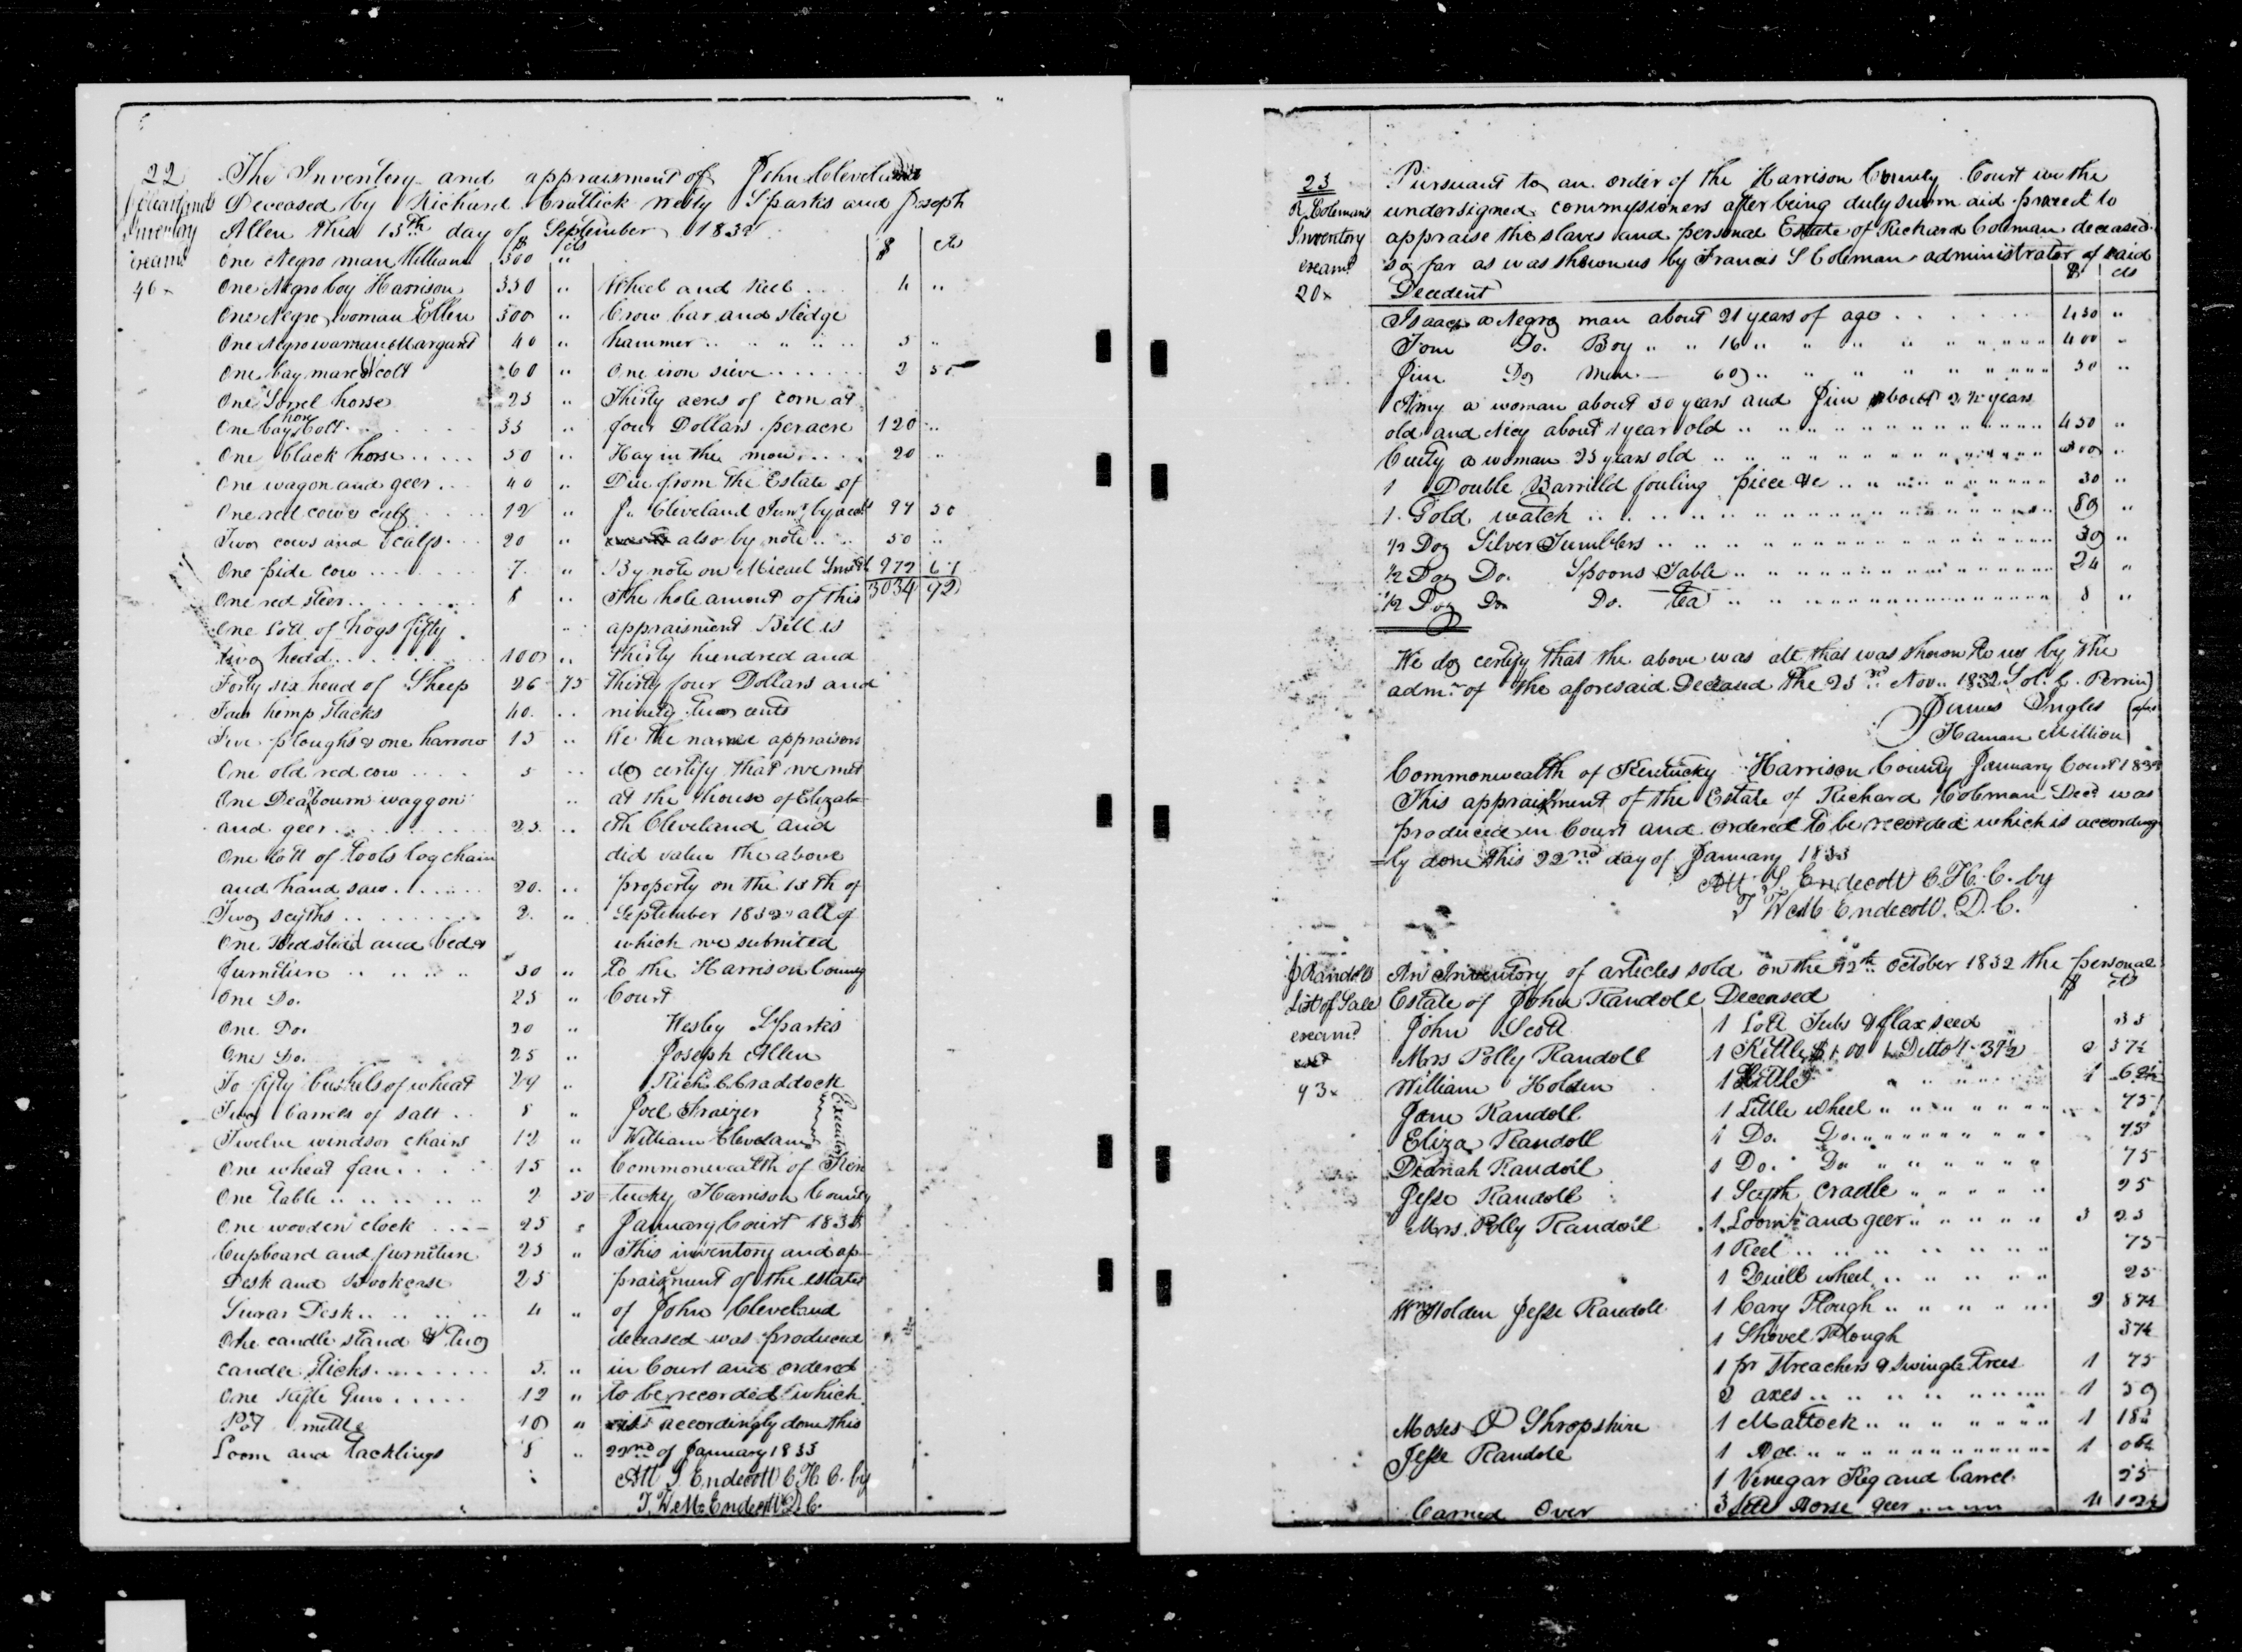 22 The Inventory and appraisment of John Cleveland
Clevelands Deceased by Richard Crattick Wesly Sparks and Joseph
Inventory Allen this 15th day of September 1832
$ cts
examd One Negro man William 300 "
46x One Negro boy Harrison 350 "
One Negro woman Ellen 300 "
One Negro woman Margaret 40 "
One bay mare & colt 60 "
One Sorrel horse 25 "
One bay horse Colt 35 "
One black horse 50 "
One wagon and geer 40 "
One red cow & calf 12 "
Two cows and 2 calfs 20 "
One pide cow 7 "
One red steer 8 "
One lott of hogs fifty
two head 100 "
Forty six head of Sheep 26 75
Four hemp stacks 40 "
Five ploughs & one harrow 15 "
One old red cow 5 "
One Dearbourn waggon "
and geer 25 "
One lott of tools log chain
and hand saw 20 "
Two scyths 2 "
One Bedstead and bed &
furniture 30 "
One Do. 25 "
One Do. 20 "
One Do. 25 "
To fifty bushels of wheat 29 "
Two barrels of salt 8 "
Twelve windsor chairs 12 "
One wheat fan 15 "
One table 2 50
One wooden clock 25 "
Cupboard and furniture 25 "
Desk and Bookcase 25
Sugar Desk 4 "
One candle stand & two
candle sticks 5 "
One Rifle Gun 12 "
Pot mettle 10 "
Loom and tacklings 8 "
$ cts
Wheel and Reel 4 "
Crow bar and sledge
hammer 5 "
One iron sieve 2 50
Thirty acres of corn at
four Dollars per acre 120 "
Hay in the mow 20 "
Due from the Estate of
J. Cleveland Senr by acct 97 50
also by note 50 "
By note on Micael Smith 972 67
The hole amont of this 3034 92
appraisment Bill is
thirty hundred and
thirty four Dollars and
ninety two cents
We the name appraisors
do certify that we met
at the house of Elizab=
eth Cleveland and
did value the above
property on the 15th of
September 1832 all of
which we submited
to the Harrison County
Court
Wesley Sparks
Joseph Allen
Rich. C. Craddock
Joel Fraizer
William Cleveland
Executors
Commonwealth of Ken
tucky Harrison County
January Court 1833
This inventory and ap
praisment of the estate
of John Cleveland
deceased was produced
in Court and ordered
to be recorded which
is accordingly done this
22nd of January 1833
Att S Endecott C.H.C. by
T. W.M. Endecott D.C.
23 Pursuant to an order of the Harrison County Court we the
R. Colemans undersigned commyssioners after being duly sworn aid proceed to
Inventory appraise the slaves and personal Estate of Richard Coleman deceased
examd so far as was shown us by Francis S Coleman administrator of said
20x Decedent $ cts
Isaac a Negro man about 21 years of age 450 "
Tom Do. Boy " " 16 " " " 400 "
Jim Do man 60 " " " 50 "
Aimy a woman about 30 years and Jim about 2½ years
old and Nicy about 1 year old 450 "
Cuity a woman 25 years old 300 "
1 Double Barrilld fouling piece &c 30 "
1 Gold watch 80 "
½ Doz Silver Tumblers 30 "
½ Doz Do. Spoons Table 24 "
½ Doz Do Do. Tea 8 "
We do certify that the above was all that was shown to us by the
admr of the aforesaid Deceased the 23rd Nov. 1832 Sol. C. Perrin
James Ingles
Haman Million
Commonwealth of Kentucky Harrison County January Court 1833
This appraisment of the Estate of Richard Coleman Decd was
produced in Court and ordered to be recorded which is according
=ly done this 22nd day of January 1833
Att S Endecott C.H.C. by
T W.M. Endecott. D.C.
J Randolls An Inventory of articles sold on the 12th October 1832 the personal
List of Sale Estate of John Randoll Deceased $ cts
examd John Scott 1 Lott Tubs & flax seed 35
Mrs Polly Randoll 1 Kettle $1.00 1 Ditto 1.37½ 2 37½
93x William Holden 1 Kittle 1 62½
Jane Randoll 1 Little wheel " " " 75
Eliza Randoll 1 Do. Do. " " " 75
Dianah Randoll 1 Do. Do " " " 75
Jesse Randoll 1 Scyth Cradle " " " 25
Mrs. Polly Randoll 1 Loom and geer " " " 3 25
1 Reel 75
1 Quill wheel 25
Wm Holden Jesse Randoll 1 Cary Plough 2 87½
1 Shovel Plough 37½
1 pr Streachers & Swingle Trees 1 75
2 axes 1 50
Moses O Shropshire 1 Mattock 1 18¾
Jesse Randole 1 Do. 1 06¼
1 Venegar Keg and barrel 25
Carried Over 3 sett Horse geer 4 12½